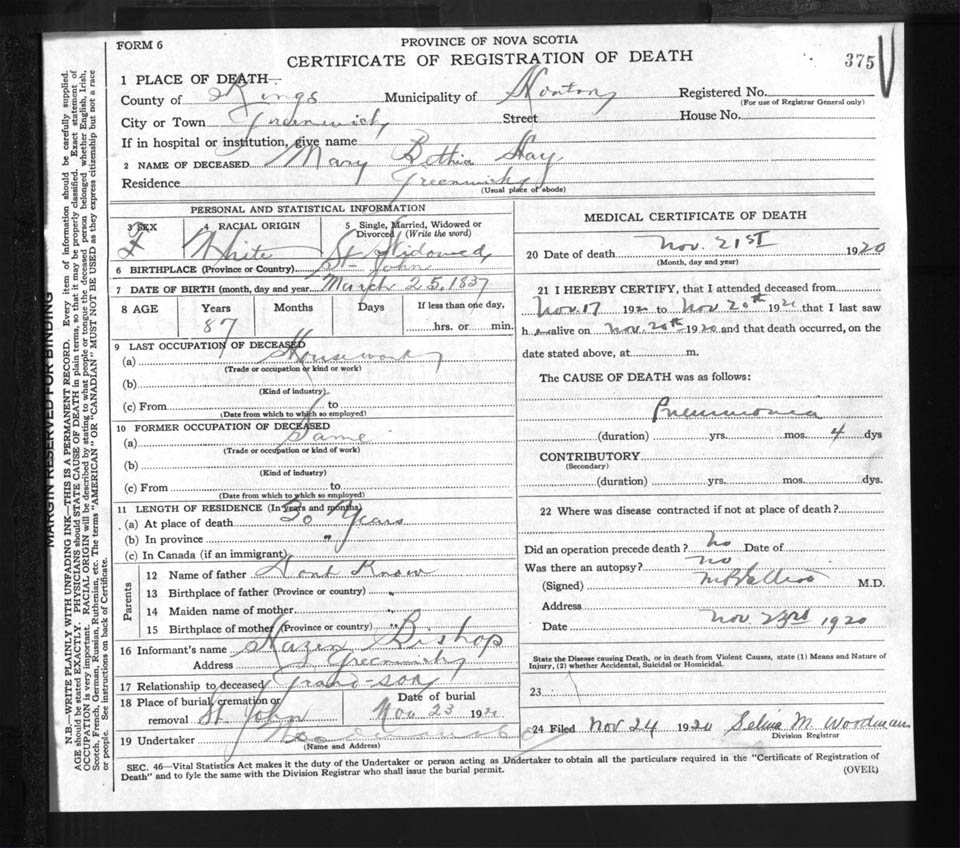 FORM 6
PROVINCE OF NOVA SCOTIA
CERTIFICATE OF REGISTRATION OF DEATH
375
1 PLACE OF DEATH—
County of Kings Municipality of Horton Registered No.
(For use of Registrar General only)
City or Town Greenwich Street House No.
If in hospital or institution, give name
2 NAME OF DECEASED Mary Bethia Hay
Residence Greenwich
(Usual place of abode)
PERSONAL AND STATISTICAL INFORMATION
3 SEX 4 RACIAL ORIGIN 5 Single, Married, Widowed or
Divorced (Write the word)
F White Widowed
6 BIRTHPLACE (Province or Country) St John
7 DATE OF BIRTH (month, day and year) March 25, 1837
8 AGE Years Months Days If less than one day,
87 hrs. or min.
9 LAST OCCUPATION OF DECEASED
(a) Housework
(Trade or occupation or kind or work)
(b)
(Kind of industry)
(c) From to
(Date from which to which so employed)
10 FORMER OCCUPATION OF DECEASED
(a) Same
(Trade or occupation or kind of work)
(b)
(Kind of industry)
(c) From to
(Date from which to which so employed)
11 LENGTH OF RESIDENCE (In years and months)
(a) At place of death 30 Years
(b) In province "
(c) In Canada (if an immigrant)
Parents
12 Name of father Dont Know
13 Birthplace of father (Province or country) "
14 Maiden name of mother "
15 Birthplace of mother (Province or country) "
16 Informant's name Hazen Bishop
Address Greenwich
17 Relationship to deceased Grand-son
18 Place of burial, cremation or
removal St John
Date of burial
Nov 23 1920
19 Undertaker
(Name and Address)
MEDICAL CERTIFICATE OF DEATH
20 Date of death Nov. 21st 1920
(Month, day and year)
21 I HEREBY CERTIFY, that I attended deceased from
Nov. 17 1920 to Nov 20th 1920 that I last saw
her alive on Nov. 20th 1920 and that death occurred, on the
date stated above, at m.
The CAUSE OF DEATH was as follows:
Pneumonia
(duration) yrs. mos. 4 dys
CONTRIBUTORY
(Secondary)
(duration) yrs. mos. dys.
22 Where was disease contracted if not at place of death?
Did an operation precede death? no Date of
Was there an autopsy? no
(Signed) M.D.
Address
Date Nov 23rd 1920
State the Disease causing Death, or in death from Violent Causes, state (1) Means and Nature of
Injury, (2) whether Accidental, Suicidal or Homicidal.
23
24 Filed Nov 24 1920 Selina M. Woodman
Division Registrar
SEC. 46—Vital Statistics Act makes it the duty of the Undertaker or person acting as Undertaker to obtain all the particulars required in the "Certificate of Registration of
Death" and to fyle the same with the Division Registrar who shall issue the burial permit.
(OVER)
MARGIN RESERVED FOR BINDING
N.B.—WRITE PLAINLY WITH UNFADING INK—THIS IS A PERMANENT RECORD. Every item of information should be carefully supplied.
AGE should be stated EXACTLY. PHYSICIANS should STATE CAUSE OF DEATH in plain terms, so that it may be properly classified. Exact statement of
OCCUPATION is very important. RACIAL ORIGIN will be described by stating to what people or tongue the deceased person belonged whether English, Irish,
Scotch, French, German, Russian, Ruthenian, etc. The terms "AMERICAN" OR "CANADIAN" MUST NOT BE USED as they express citizenship but not a race
or people. See instructions on back of Certificate.